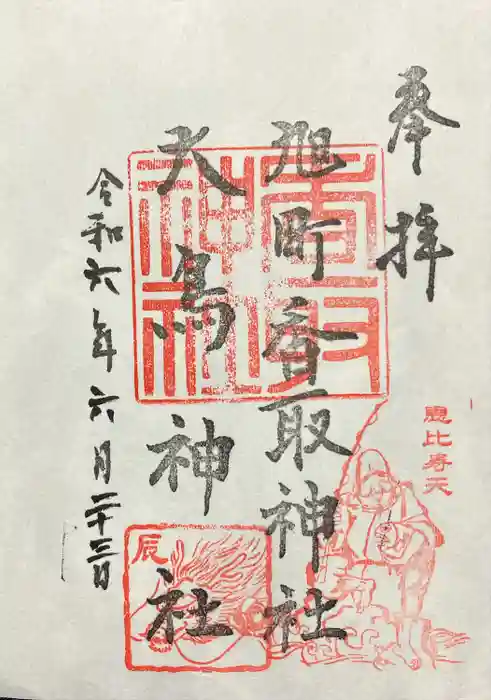 奉拝
恵比寿天
旭町香取神社
大鳥神社
香取神社
辰
令和六年六月二十三日